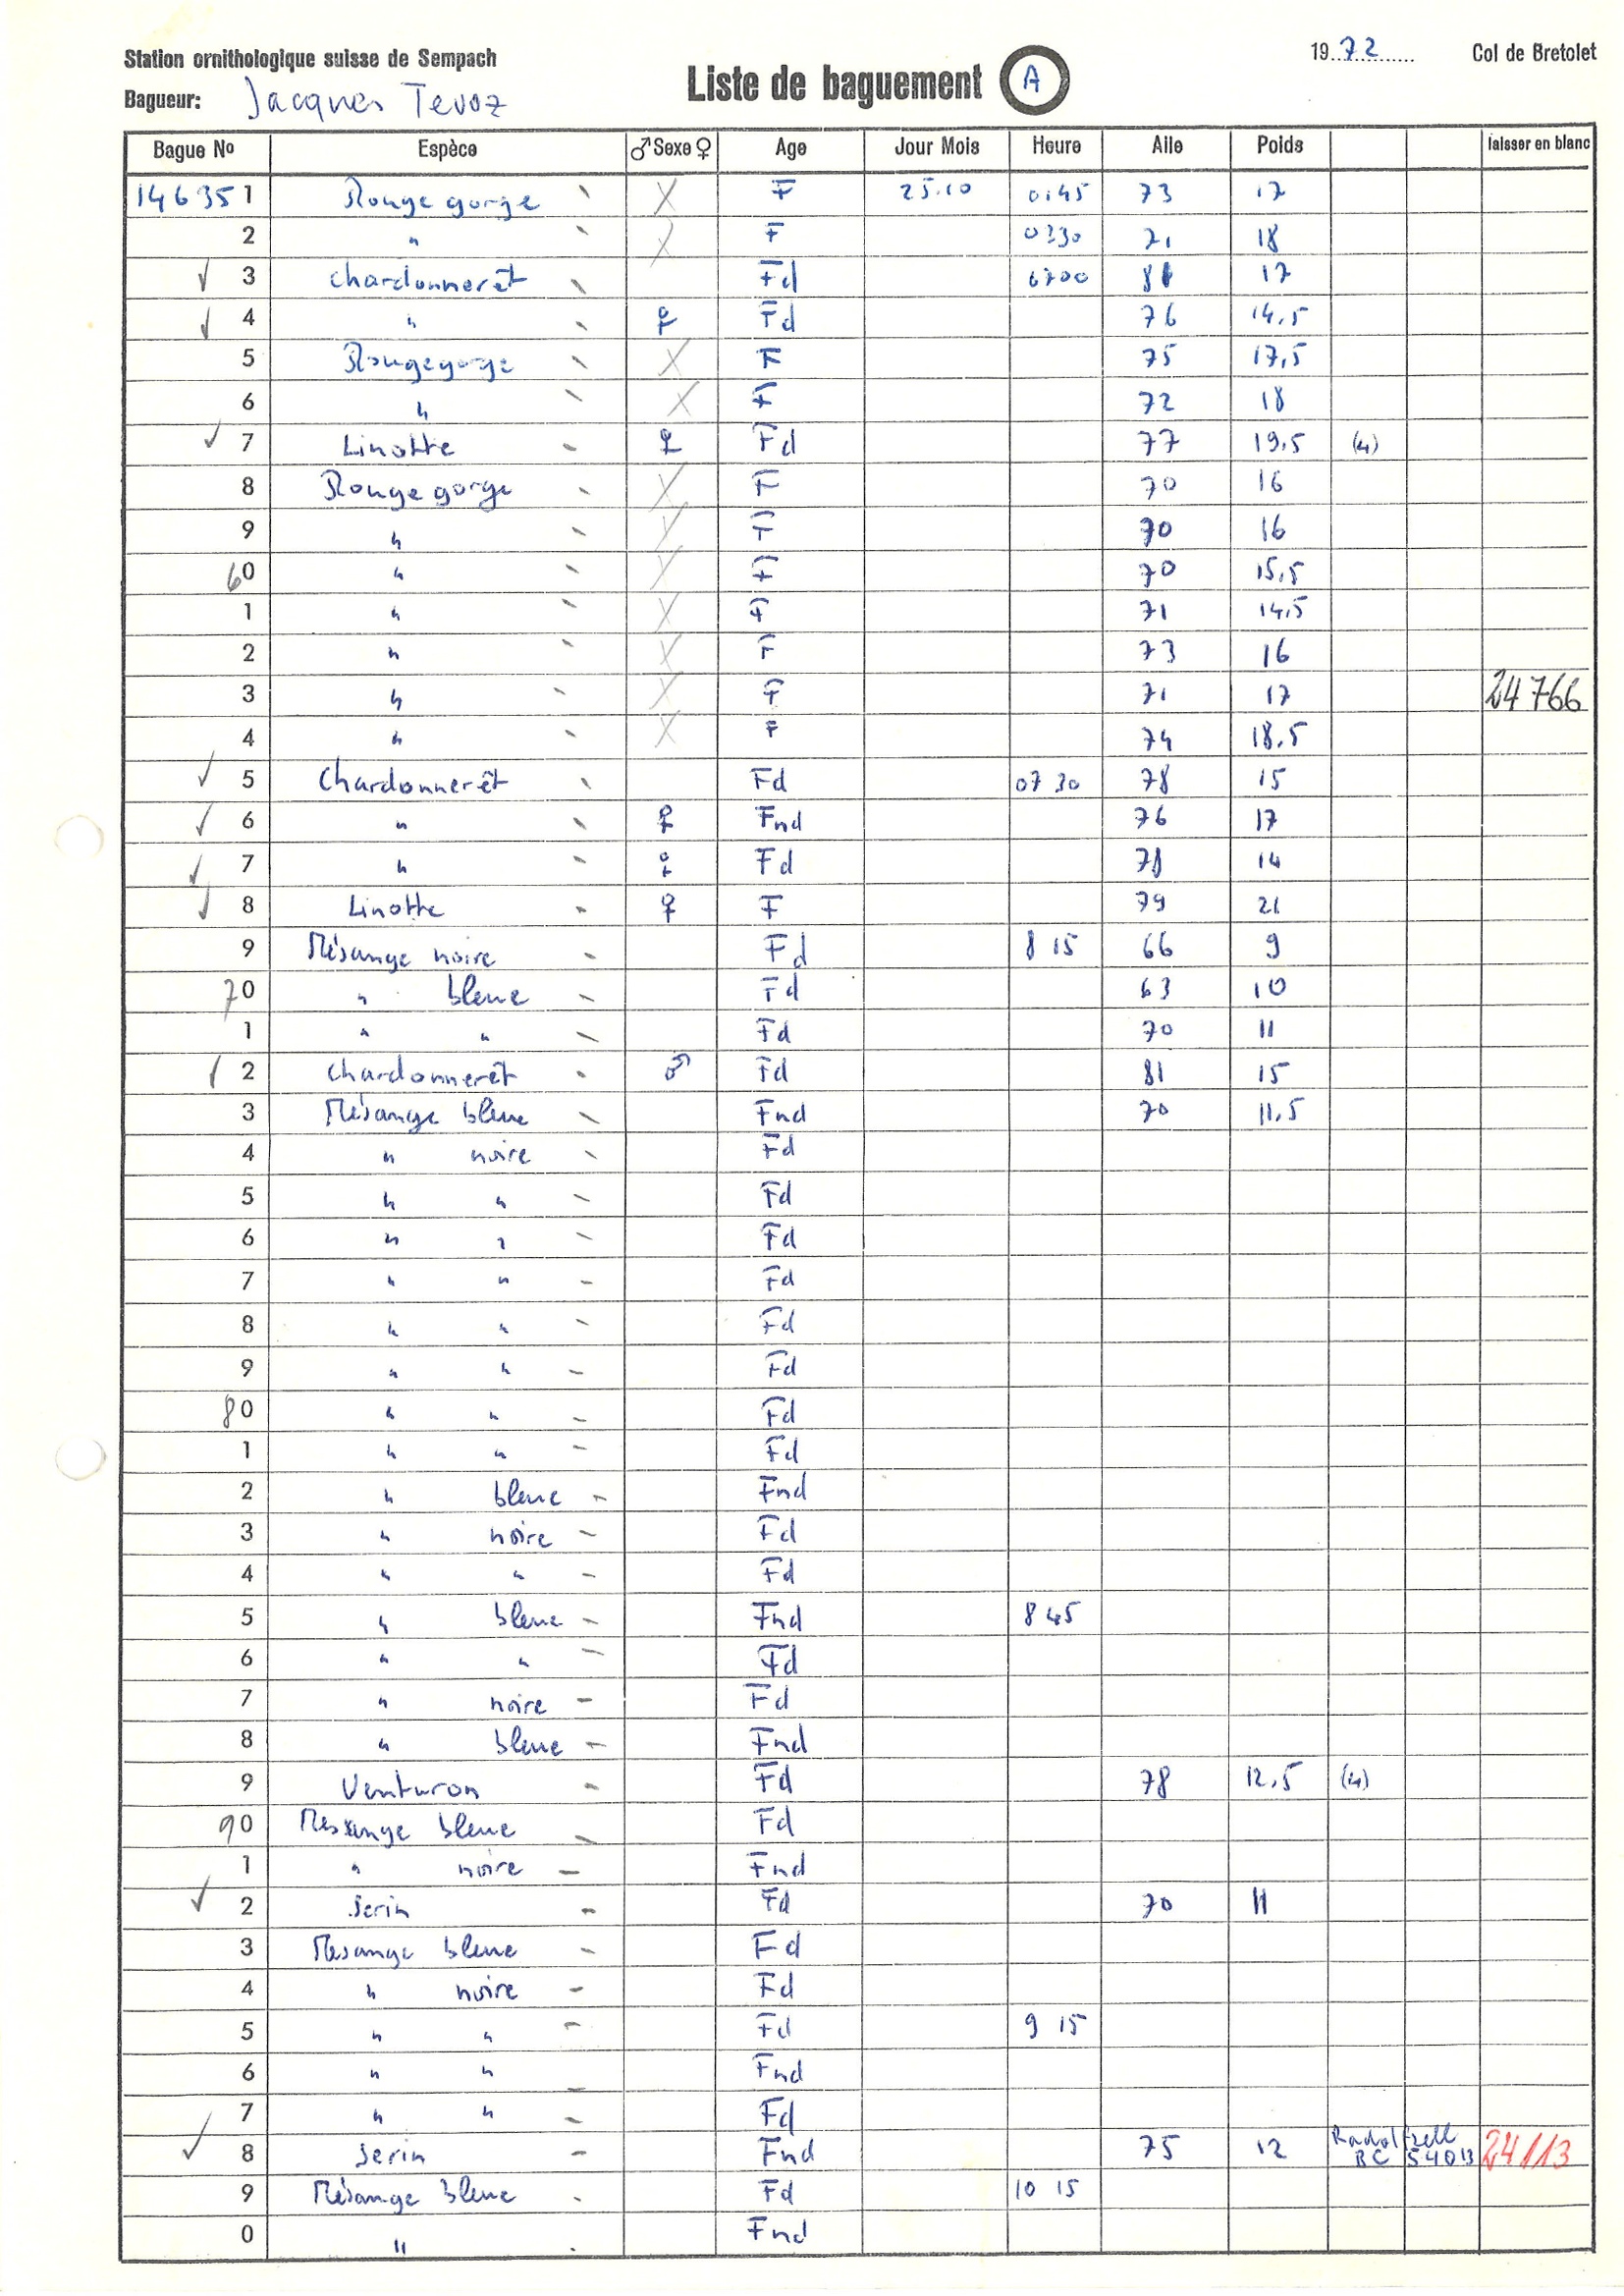 Station ornithologique suisse de Sempach
19 72 Col de Bretolet
Bagueur: Jacques Tevoz
Liste de baguement A
Bague No Espèce ♂ Sexe ♀ Age Jour Mois Heure Aile Poids laisser en blanc
146351 Rouge gorge X F 25.10 0145 73 17
2 " X F 0330 71 18
✓ 3 Chardonneret Fd 0700 81 17
✓ 4 " ♀ Fd 76 14,5
5 Rougegorge X F 75 17,5
6 " X F 72 18
✓ 7 Linotte ♀ Fd 77 19,5 (4)
8 Rouge gorge X F 70 16
9 " X F 70 16
60 " X F 70 15,5
1 " X F 71 14,5
2 " X F 73 16
3 " X F 71 17 24766
4 " X F 74 18,5
✓ 5 Chardonneret Fd 07 30 78 15
✓ 6 " ♀ Fnd 76 17
✓ 7 " ♀ Fd 78 14
✓ 8 Linotte ♀ F 79 21
9 Mésange noire Fd 8 15 66 9
70 " bleue Fd 63 10
1 " " Fd 70 11
✓ 2 Chardonneret ♂ Fd 81 15
3 Mésange bleue Fnd 70 11,5
4 " noire Fd
5 " " Fd
6 " " Fd
7 " " Fd
8 " " Fd
9 " " Fd
80 " " Fd
1 " " Fd
2 " bleue Fnd
3 " noire Fd
4 " " Fd
5 " bleue Fnd 8 45
6 " " Fd
7 " noire Fd
8 " bleue Fnd
9 Venturon Fd 78 12,5 (4)
90 Mesange bleue Fd
1 " noire Fnd
✓ 2 Serin Fd 70 11
3 Mesange bleue Fd
4 " noire Fd
5 " " Fd 9 15
6 " " Fnd
7 " " Fd
✓ 8 Serin Fnd 75 12 Radolfzell BC 54013 24113
9 Mésange bleue Fd 10 15
0 " Fnd